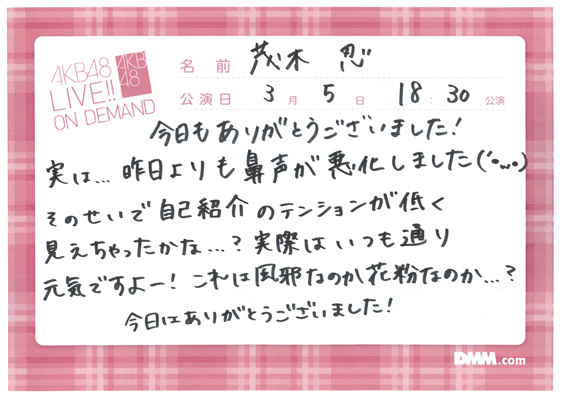 AKB48
LIVE!!
ON DEMAND
AKB
48
名前 茂木 忍
公演日 3月5日 18:30公演
今日もありがとうございました!
実は… 昨日よりも鼻声が悪化しました(´•ω•)
そのせいで自己紹介のテンションが低く
見えちゃったかな…?実際はいつも通り
元気ですよー! これは風邪なのか花粉なのか…?
今日はありがとうございました!
DMM.com